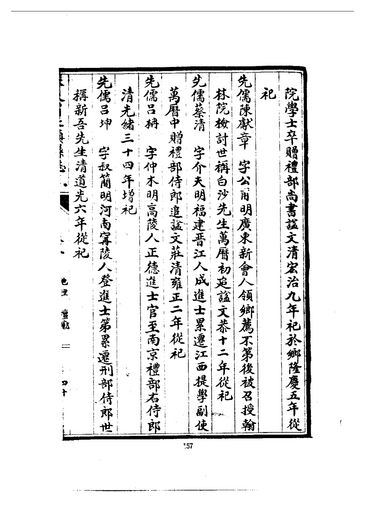 院學士卒贈禮部尚書諡文清宏治九年祀於鄉隆慶五年從
祀
先儒陳獻章　字公甫明廣東新會人領鄉薦不第後被召授翰
林院檢討世稱白沙先生萬曆初追諡文恭十二年從祀
先儒蔡清　字介夫明福建晉江人成進士累遷江西提學副使
萬曆中贈禮部侍郎追諡文莊清雍正二年從祀
先儒呂柟　字仲木明高陵人正德進士官至南京禮部右侍郎
清光緒三十四年增祀
先儒呂坤　字叔簡明河南寧陵人登進士第累遷刑部侍郎世
稱新吾先生清道光六年從祀
157